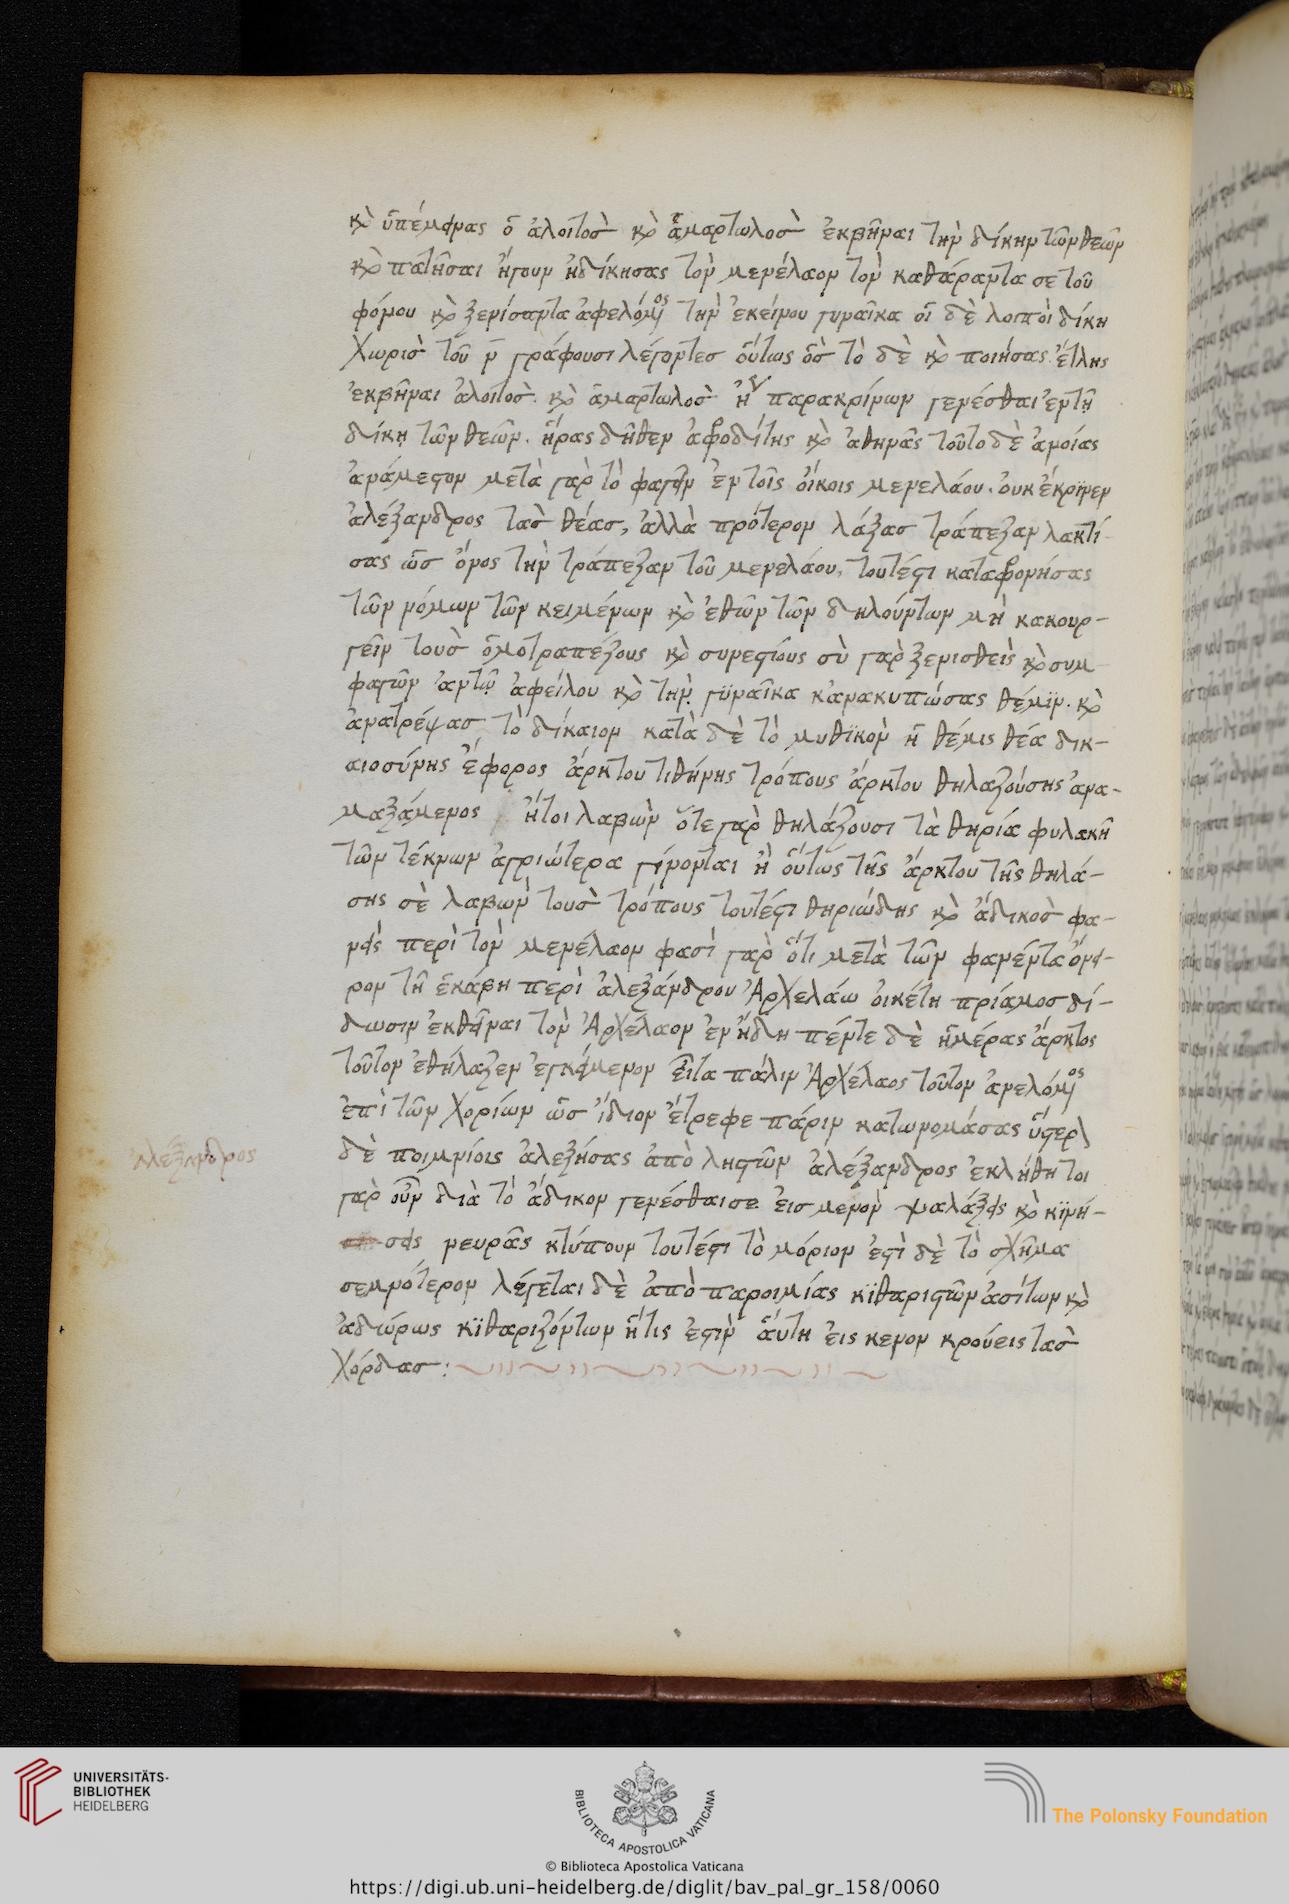 κ̀ ὑπέμεινας ὁ ἀλοιτὸσ κ̀ ἁμαρτωλὸσ ἐκβῆναι τὴν δίκην τῶν θεῶν
κ̀ πατῆσαι ἤγουν ἠδίκησας τὸν μενέλαον τὸν καθάραντα σε τοῦ
φόνου κ̀ ξενίσαντα ἀφελόμενος τὴν ἐκείνου γυναῖκα οἱ δὲ λοιποὶ δίκη
χωρισ τοῦ ν γράφουσι λέγοντεσ οὕτως ὃσ τὸ δὲ κ̀ ποιήσας. ἔτλης
ἐκβῆναι ἀλοιτὸσ. κ̀ ἁμαρτωλὸσ ἢ παρακρίνων γενέσθαι ἐν τῆ
δίκη τῶν θεῶν. ἥρας δῆθεν ἀφροδίτης κ̀ ἀθηνᾶς τοῦτο δὲ ἀνοίας
ἀνάμεστον μετὰ γὰρ τὸ φαγεῖν ἐν τοῖς οἴκοις μενελάου. ουκ ἔκρινεν
ἀλέξανδρος τασ θέασ, ἀλλὰ πρότερον λάξασ τράπεζαν λακτί-
σας ὡσ ὄνος τὴν τράπεζαν τοῦ μενελάου, τουτέστι καταφρονήσας
τῶν νόμων τῶν κειμένων κ̀ ἐθῶν τῶν δηλούντων μὴ κακουρ-
γεῖν τουσ ὁμοτραπέζους κ̀ συνεστίους σὺ γὰρ ξενισθεὶς κ̀ συμ
φαγὼν ἀυτῷ ἀφείλου κ̀ τὴν γυναῖκα κἀνακυπώσας θέμιν. κ̀
ἀνατρέψασ τὸ δίκαιον κατὰ δὲ τὸ μυθικὸν ἡ θέμις θέα δικ-
αιοσύνης ἔφορος ἄρκτου τιθήνης τρόπους ἄρκτου θηλαζούσης ἀνα-
μαξάμενος ἤτοι λαβὼν ὅτε γὰρ θηλάζουσι τὰ θηρία φυλακῆ
τῶν τέκνων ἀγριώτερα γίνονται ἢ οὕτως τῆς ἄρκτου τῆς θηλά-
σης σὲ λαβὼν τουσ τρόπους τουτέστι θηριώδης κ̀ ἄδικοσ φα-
νεὶς περὶ τὸν μενέλαον φασὶ γὰρ ὅτι μετὰ τῶν φανέντα ὄνει-
ρον τῆ ἑκάβη περὶ ἀλεξάνδρου Ἀρχελάω οἰκέτη πρίαμοσ δί-
δωσιν ἐκθεῖναι τὸν Ἀρχέλαον ἐν ἤδη πέντε δὲ ἡμέρας ἄρκτος
τοῦτον ἐθήλαζεν ἐγκείμενον εἶτα πάλιν Ἀρχέλαος τοῦτον ἀνελόμενος
ἐπὶ τῶν χορίων ὡσ ἴδιον ἔτρεφε πάριν κατωνομάσας ὕστερον
δὲ ποιμνίοις ἀλεξήσας ἀπὸ ληστῶν ἀλέξανδρος ἐκλήθη τοι
γὰρ οὖν διὰ τὸ ἄδικον γενέσθαι σε. ἐισ μενὸν ψαλάξεις κ̀ κινή-
σεις νευρᾶς κτύπουν τουτέστι τὸ μόριον ἐστὶ δὲ τὸ σχῆμα
σεμνότερον λέγεται δὲ ἀπὸ παροιμίας κιθαριστῶν ἀσίτων κ̀
ἀδώρως κιθαριζόντων ἥτις ἐστὶν ἅυτη ἐις κενον κρούεις τασ
χόρδασ:
ἀλέξανδρος
UNIVERSITÄTS-
BIBLIOTHEK
HEIDELBERG
BIBLIOTECA APOSTOLICA VATICANA
The Polonsky Foundation
© Biblioteca Apostolica Vaticana
https://digi.ub.uni-heidelberg.de/diglit/bav_pal_gr_158/0060